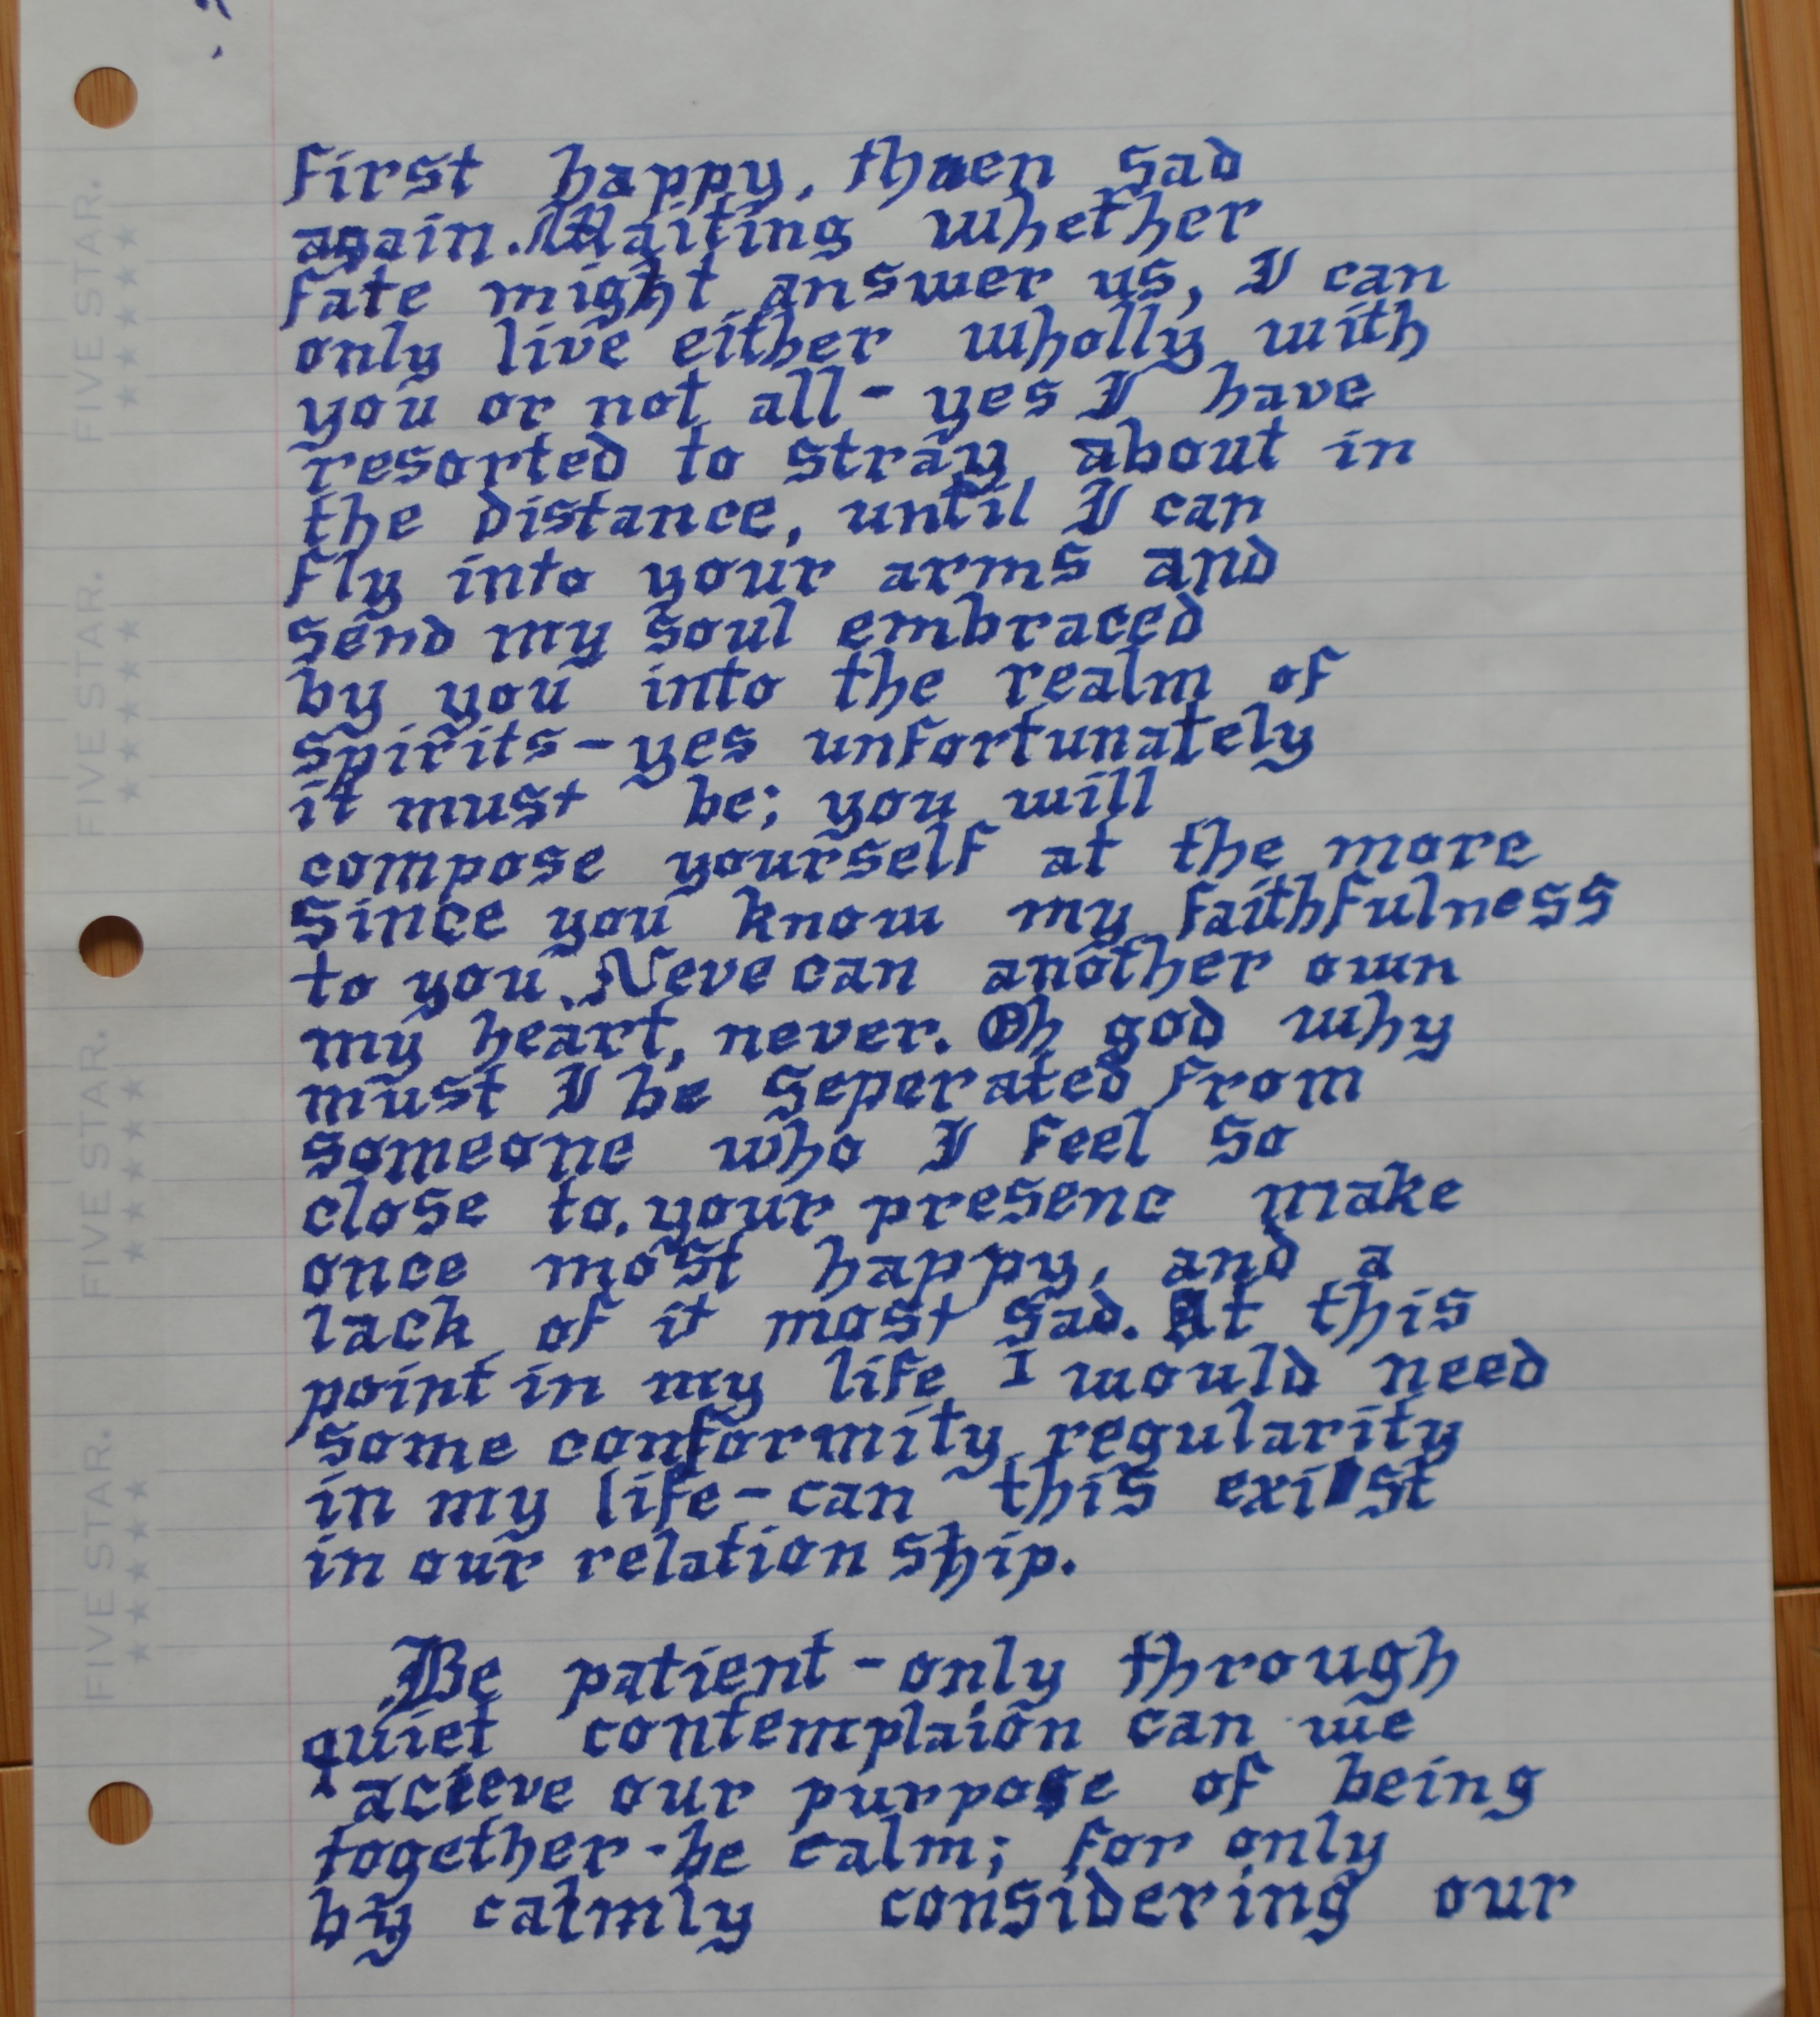 FIVE STAR.
FIVE STAR.
FIVE STAR.
FIVE STAR.
first happy, then sad
again. Waiting whether
fate might answer us, I can
only live either wholly with
you or not all - yes I have
resorted to stray about in
the distance, until I can
fly into your arms and
send my soul embraced
by you into the realm of
spirits - yes unfortunately
it must be; you will
compose yourself at the more
since you know my faithfulness
to you. Neve can another own
my heart, never. Oh god why
must I be seperated from
someone who I feel so
close to. your presenc make
once most happy, and a
lack of it most sad. At this
point in my life I would need
some conformity regularity
in my life - can this exist
in our relation ship.
Be patient - only through
quiet contemplaion can we
acieve our purpose of being
together - be calm; for only
by calmly considering our